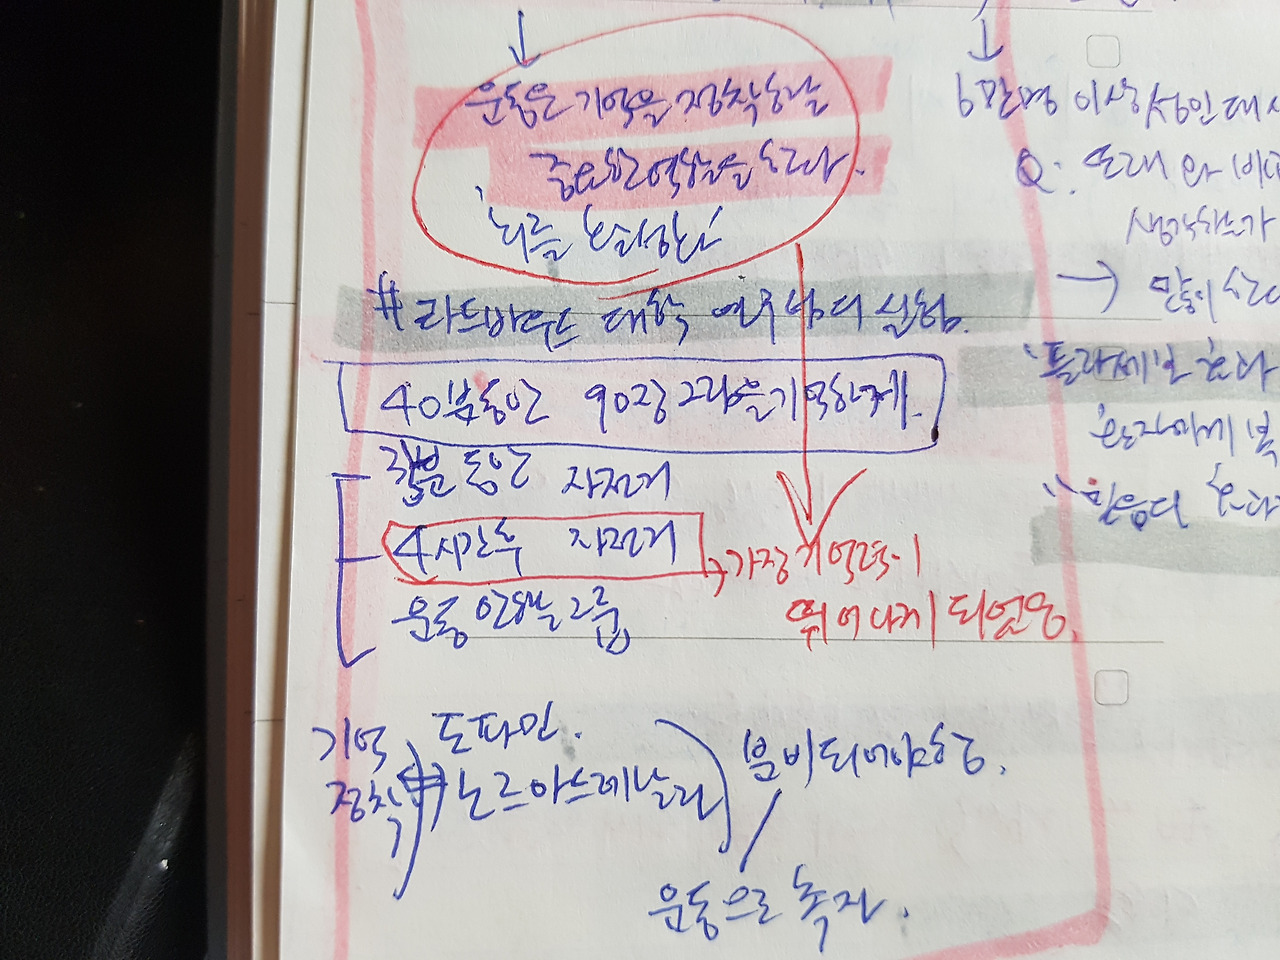 운동은 기억을 정착하는날
중요한 역할을 한다.
뇌를 활성한다
# 라드바우드 대학 연구팀의 실험.
40분동안 90장 그림을 기억하게.
동안 자전거
4시간후 자전거
→ 가장 기억력이
뛰어나게 되었음.
운동 안하는 그룹
기억 정착
도파민.
노르아드레날린
분비되어야하는.
운동으로 촉진.
6만명 이상 성인 대상
Q: 또래와 비교
생각하는가
→ 많이 한다
플라세보 효과
환자에게
믿음의 효과